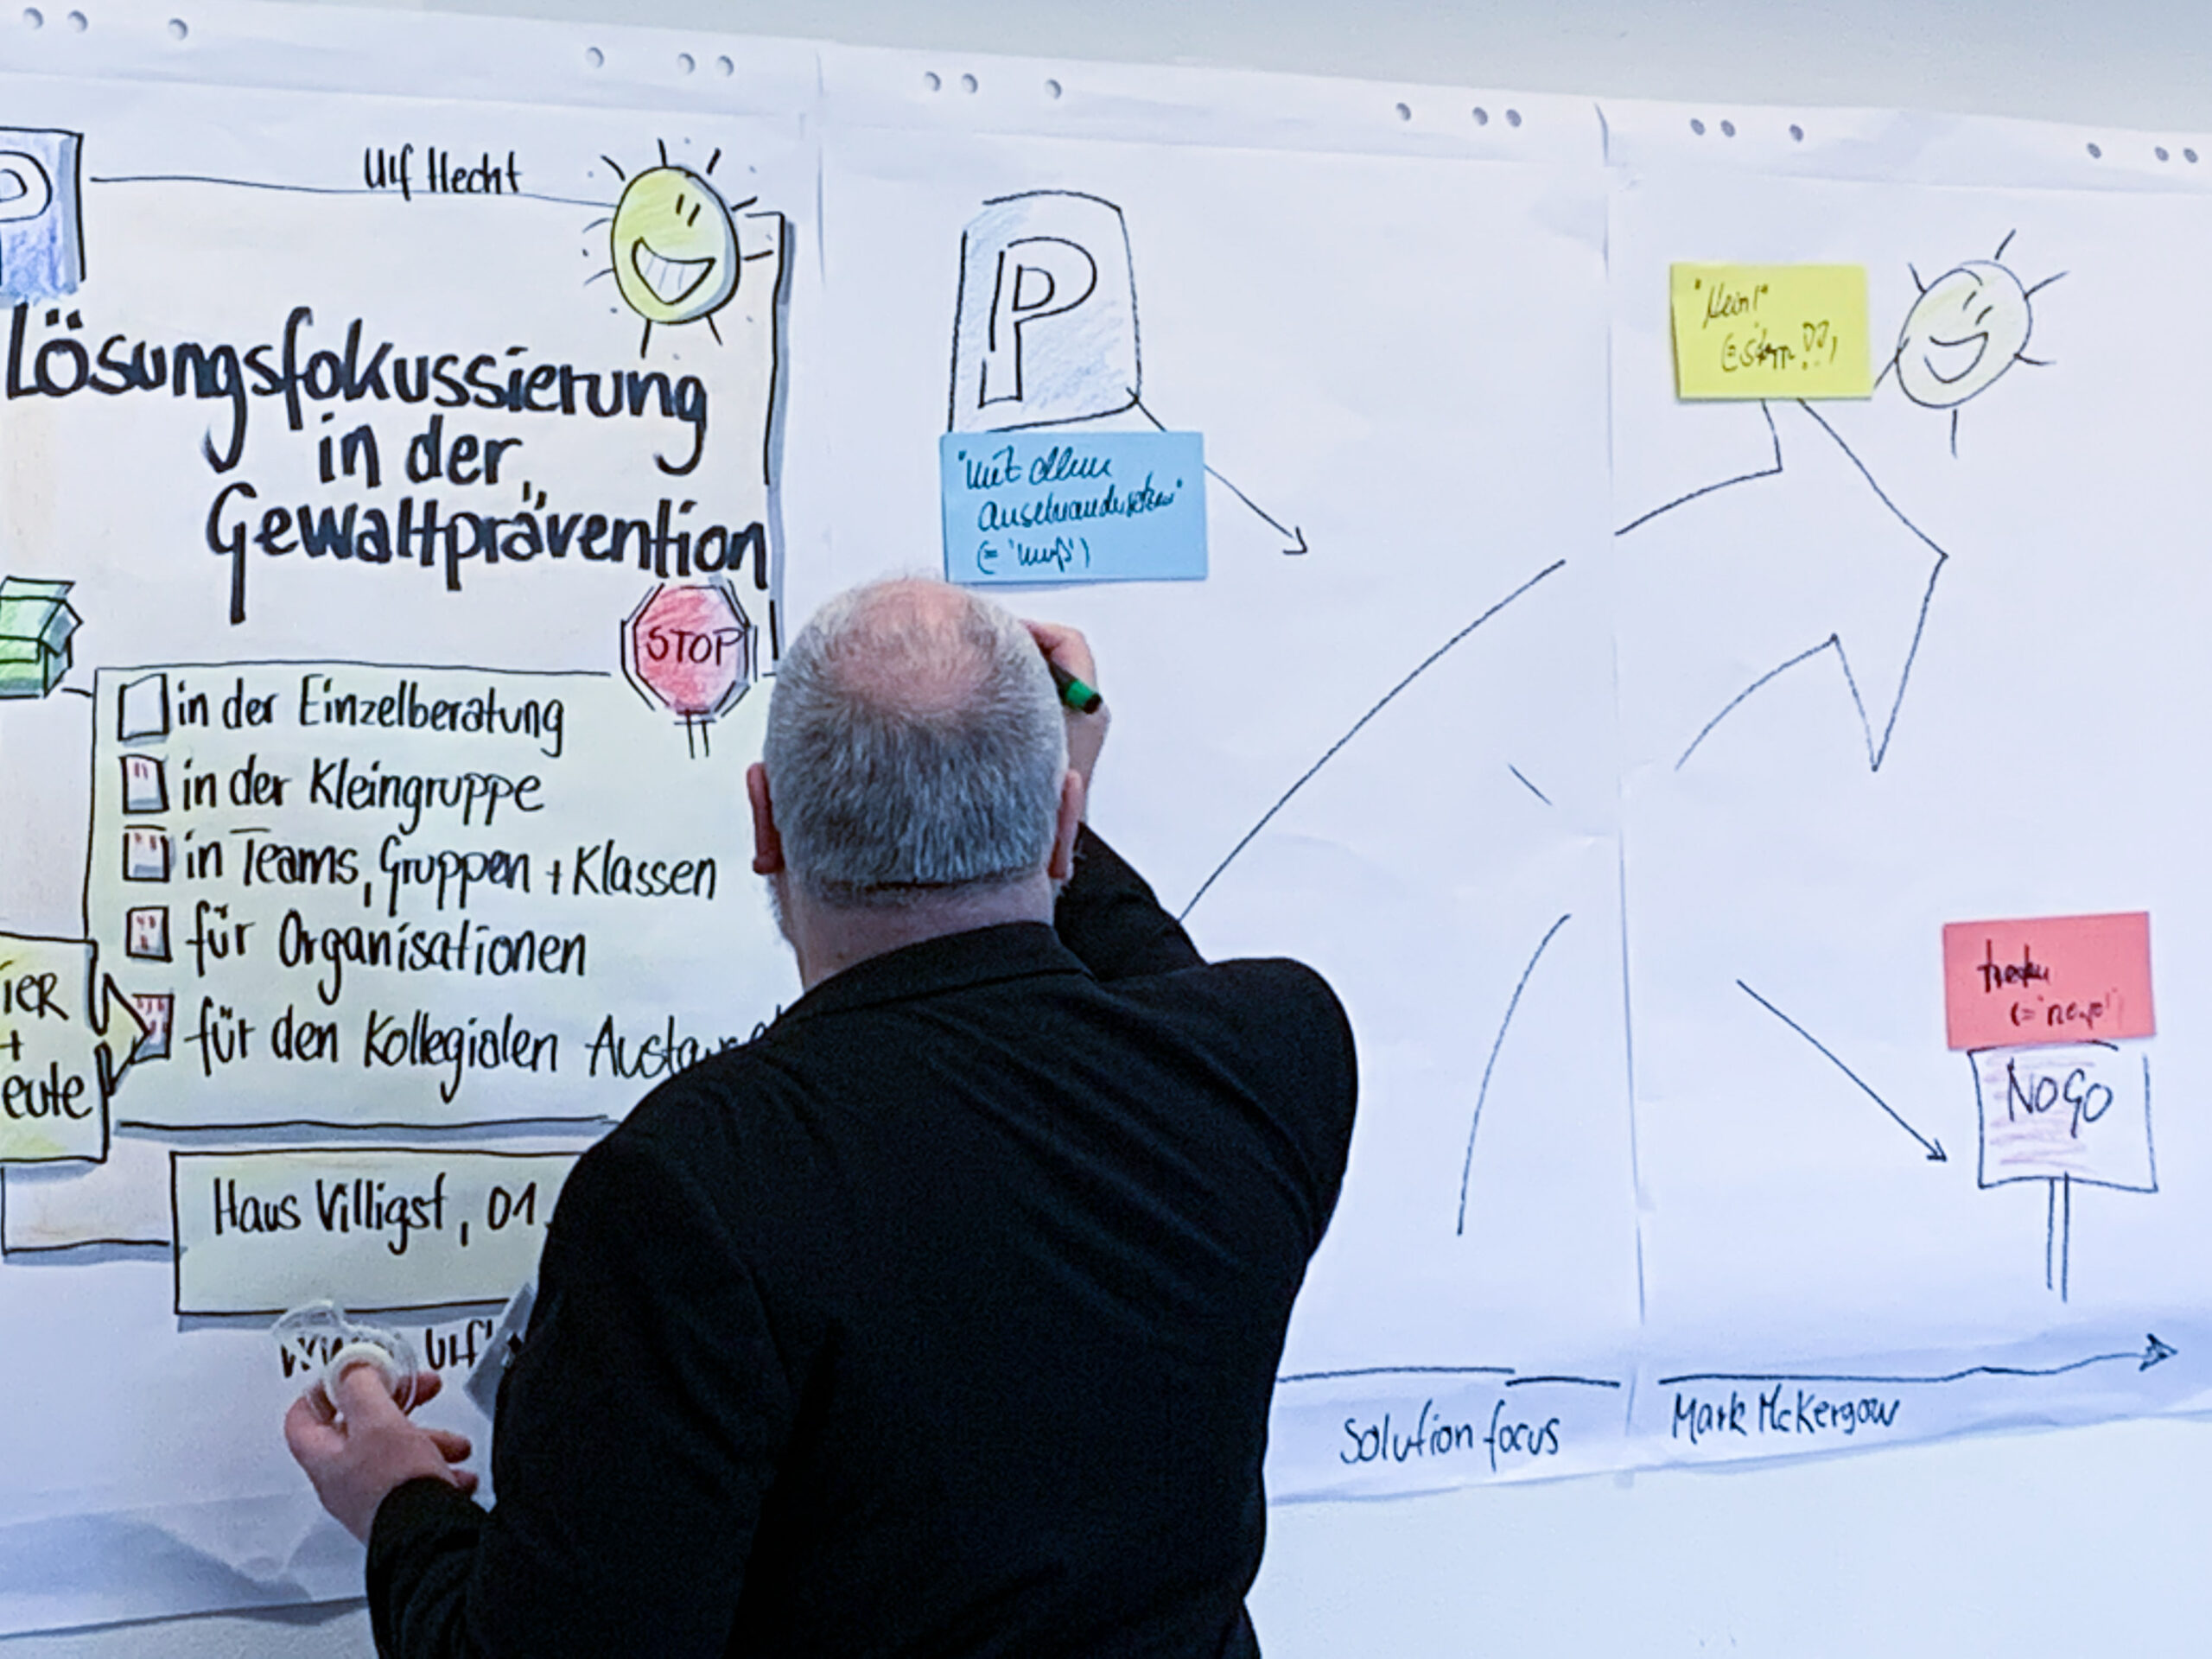 P
Ulf Hecht
Lösungsfokussierung
in der
Gewaltprävention
STOP
in der Einzelberatung
in der Kleingruppe
in Teams, Gruppen + Klassen
für Organisationen
für den Kollegialen
Haus Villigst, 01.
Ulf
P
"mit allem
auseinandersetzen"
(= 'muß')
"Nein!"
treten
NOGO
Solution focus
Mark McKergow